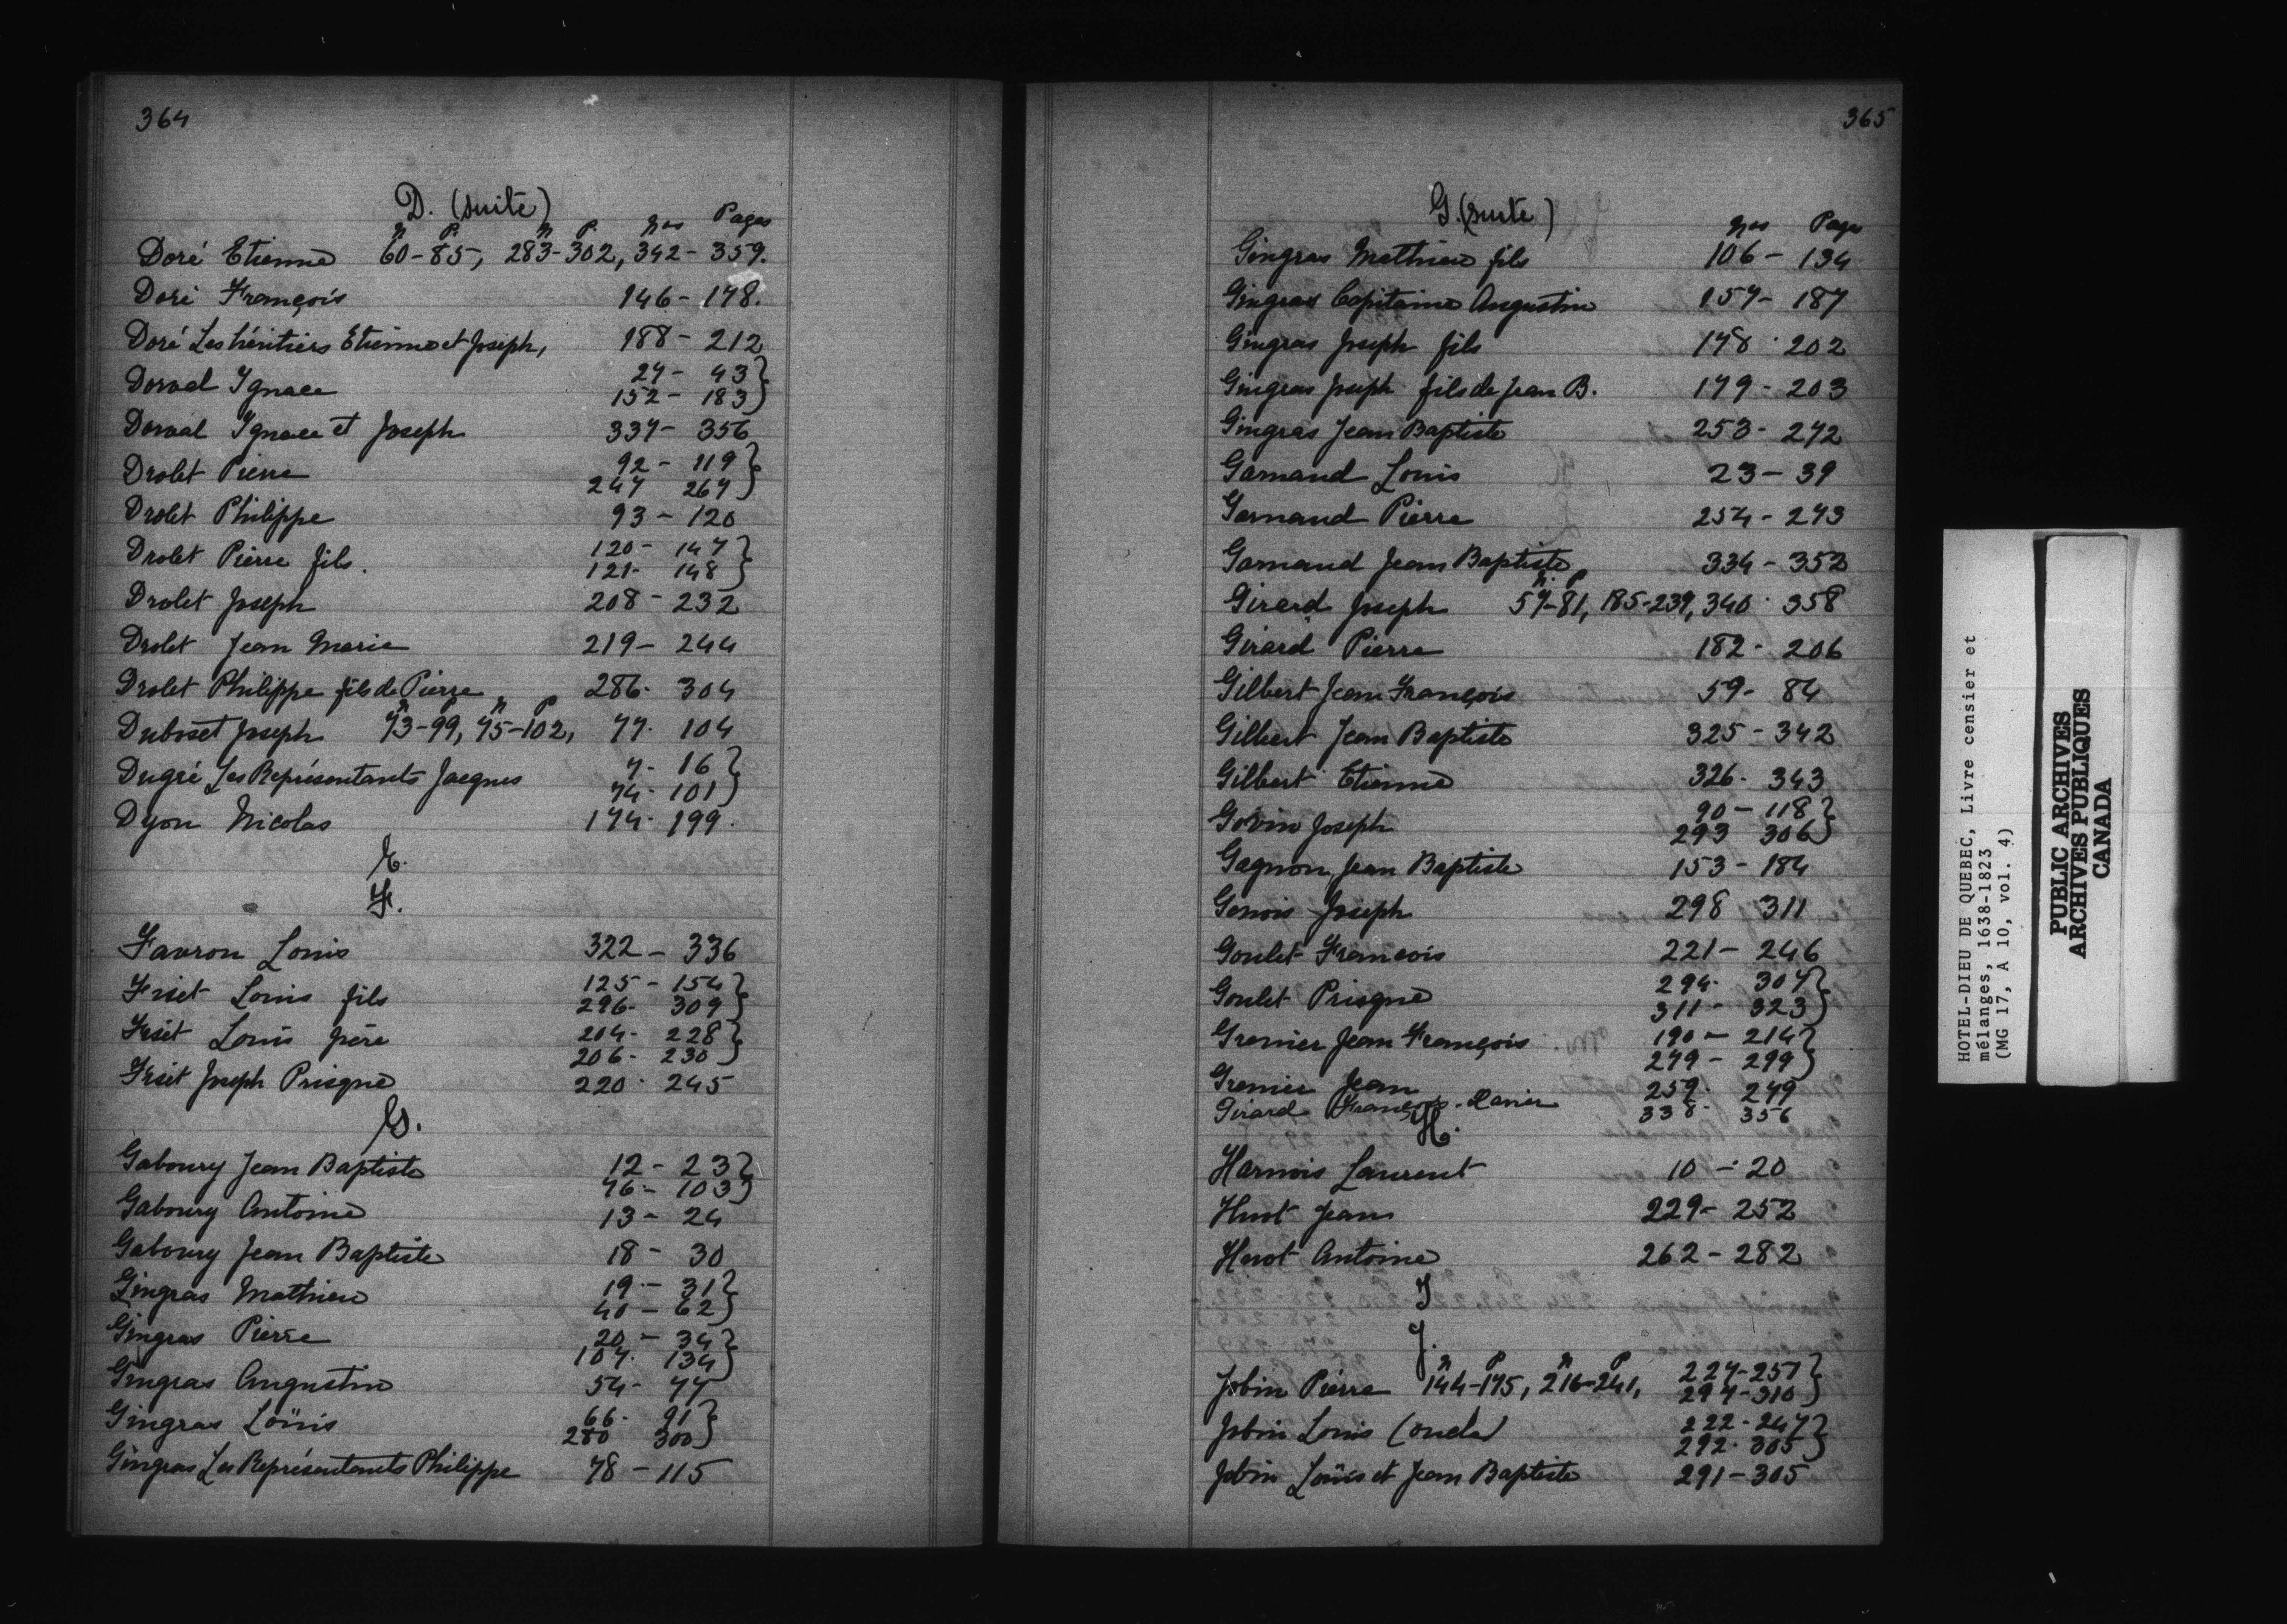 364
D. (suite)
n P. n P. Nos Pages
Doré Etienne 60-85, 283-302, 342-359.
Doré François 146-178.
Doré Les héritiers Etienne et Joseph, 188-212
Dorval Ignace 27-43}
152-183}
Dorval Ignace et Joseph 337-356
Drolet Pierre 92-119}
247 267}
Drolet Philippe 93-120
Drolet Pierre fils. 120-147}
121-148}
Drolet Joseph 208-232
Drolet Jean Marie 219-244
Drolet Philippe fils de Pierre 286-304
n P n P
Duboset Joseph 73-99, 75-102, 77-104
Dugré Les Représentants Jacques 7-16}
74-101}
Dyon Nicolas 174-199.
E.
F.
Favron Louis 322-336
Friset Louis fils 125-154}
296-309}
Friset Louis père 204-228}
206-230}
Friset Joseph Prisque 220-245
G.
Gaboury Jean Baptiste 12-23}
76-103}
Gaboury Antoine 13-24
Gaboury Jean Baptiste 18-30
Gingras Mathieu 19-31}
40-62}
Gingras Pierre 20-34}
107-134}
Gingras Augustin 54-77
Gingras Loüis 66-91}
280 300}
Gingras Les Représentants Philippe 78-115
365
G. (suite)
Nos Pages
Gingras Mathieu fils 106-134
Gingras Capitaine Augustin 157-187
Gingras Joseph fils 178-202
Gingras Joseph fils de Jean B. 179-203
Gingras Jean Baptiste 253-272
Garnaud Louis 23-39
Garnaud Pierre 254-273
Garnaud Jean Baptiste 334-352
n. P
Girard Joseph 57-81, 185-239, 340-358
Girard Pierre 182-206
Gilbert Jean François 59-84
Gilbert Jean Baptiste 325-342
Gilbert Etienne 326-343
Govin Joseph 90-118}
293 306}
Gagnon Jean Baptiste 153-184
Genois Joseph 298 311
Goulet François 221-246
Goulet Prisque 294-307}
311-323}
Grenier Jean François 190-214}
279-299}
Grenier Jean 259-279
Girard François-Xavier 338-356
H.
Harnois Laurent 10-20
Huot Jean 229-252
Huot Antoine 262-282
I
J.
n P n P
Jobin Pierre 144-175, 216-241, 227-251}
297-310}
Jobin Louis (oncle) 222-247}
292-305}
Jobin Loüis et Jean Baptiste 291-305
HOTEL-DIEU DE QUEBEC, Livre censier et
mélanges, 1638-1823
(MG 17, A 10, vol. 4)
PUBLIC ARCHIVES
ARCHIVES PUBLIQUES
CANADA